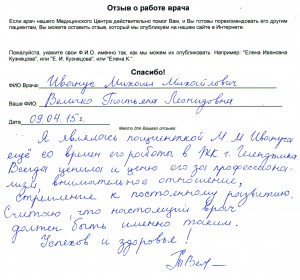 Отзыв о работе врача
Если врач нашего Медицинского Центра действительно помог Вам, и Вы готовы порекомендовать его другим
пациентам, Вы можете оставить отзыв, который мы опубликуем на нашем сайте в Интернете.
Пожалуйста, укажите свои Ф.И.О. именно так, как мы можем их опубликовать. Например: "Елена Ивановна
Кузнецова", или "Е. И. Кузнецова", или "Елена К."
Спасибо!
ФИО Врача: Иванус Михаил Михайлович
Ваше ФИО: Величко Татьяна Леонидовна
Дата 09.04.15г.
Место для Вашего отзыва:
Я являюсь пациенткой М.М. Ивануса
ещё со времен его работы в РКК г. Геленджика.
Всегда ценила и ценю его за профессиона-
лизм, внимательное отношение,
стремление к постоянному развитию.
Считаю, что настоящий врач
должен быть именно таким.
Успехов и здоровья!